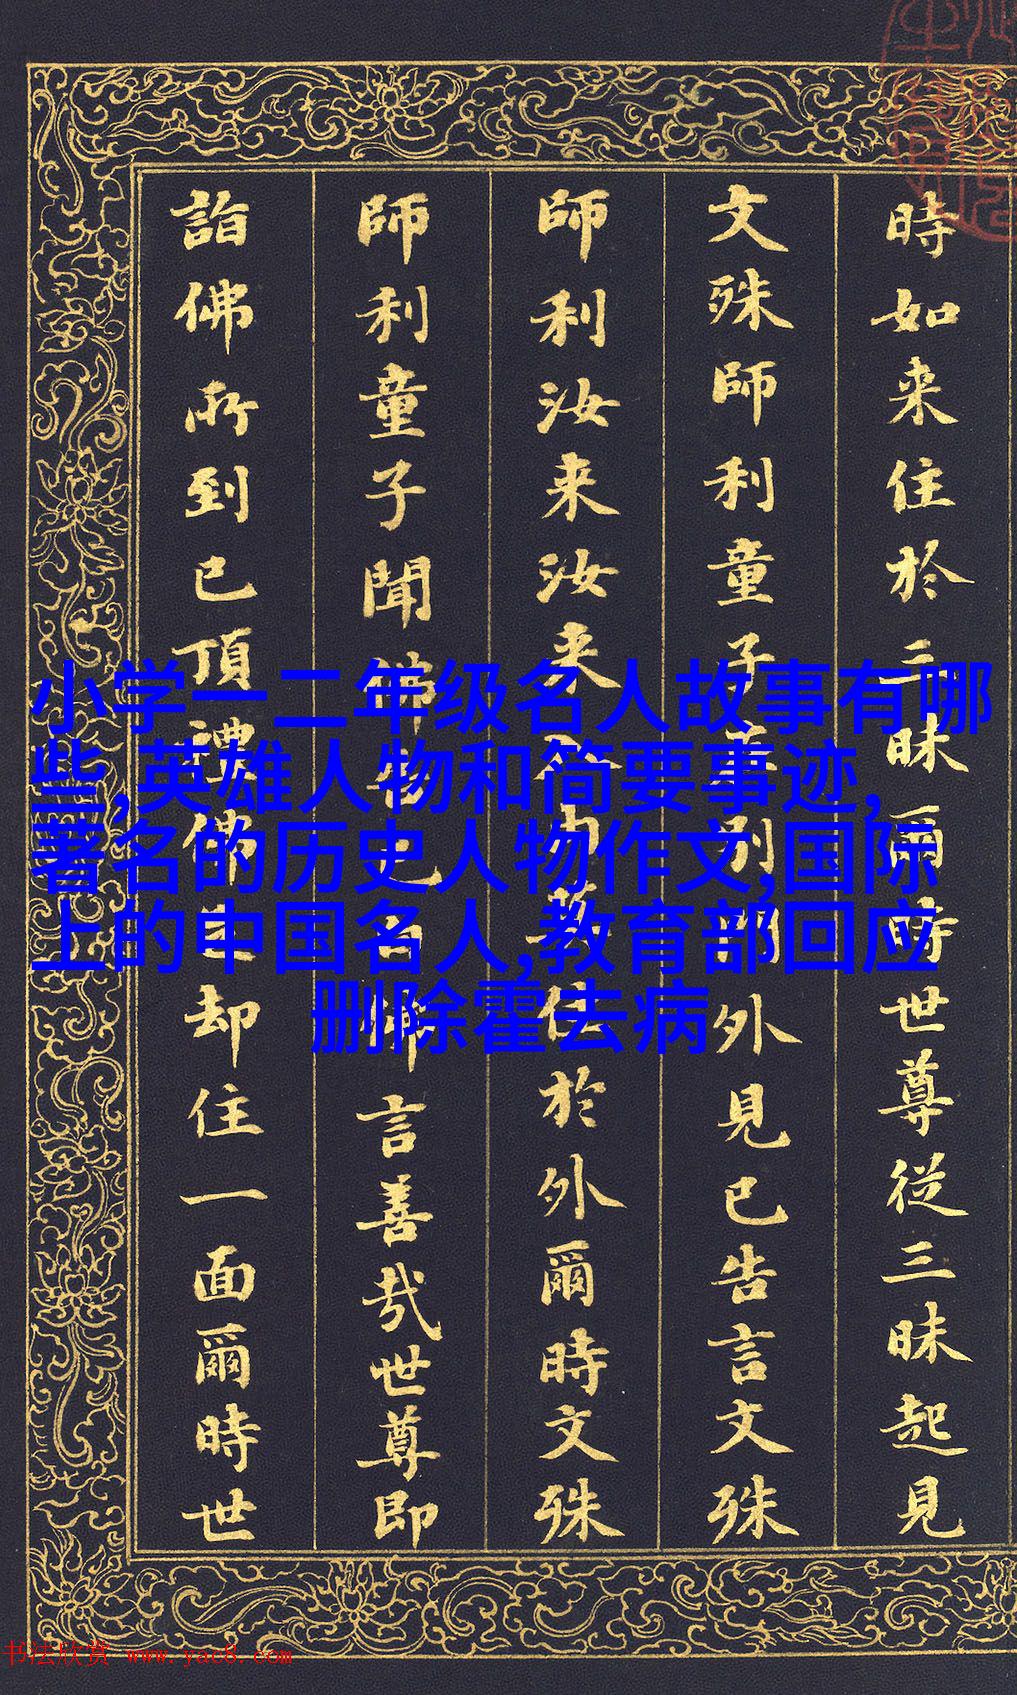 時如来住於三昧爾時世尊從三昧起見
文殊師利童子在別門外見已告言文殊
師利汝来汝来入内莫住於外爾時文殊
師利童子聞佛告已白佛言善哉世尊即
詣佛所到已頂禮佛足却住一面爾時世
小学一二年级名人故事有哪
些,英雄人物和简要事迹,
著名的历史人物作文,国际
上的中国名人,教育部回应
删除霍去病
书法欣赏 www.yac8.com